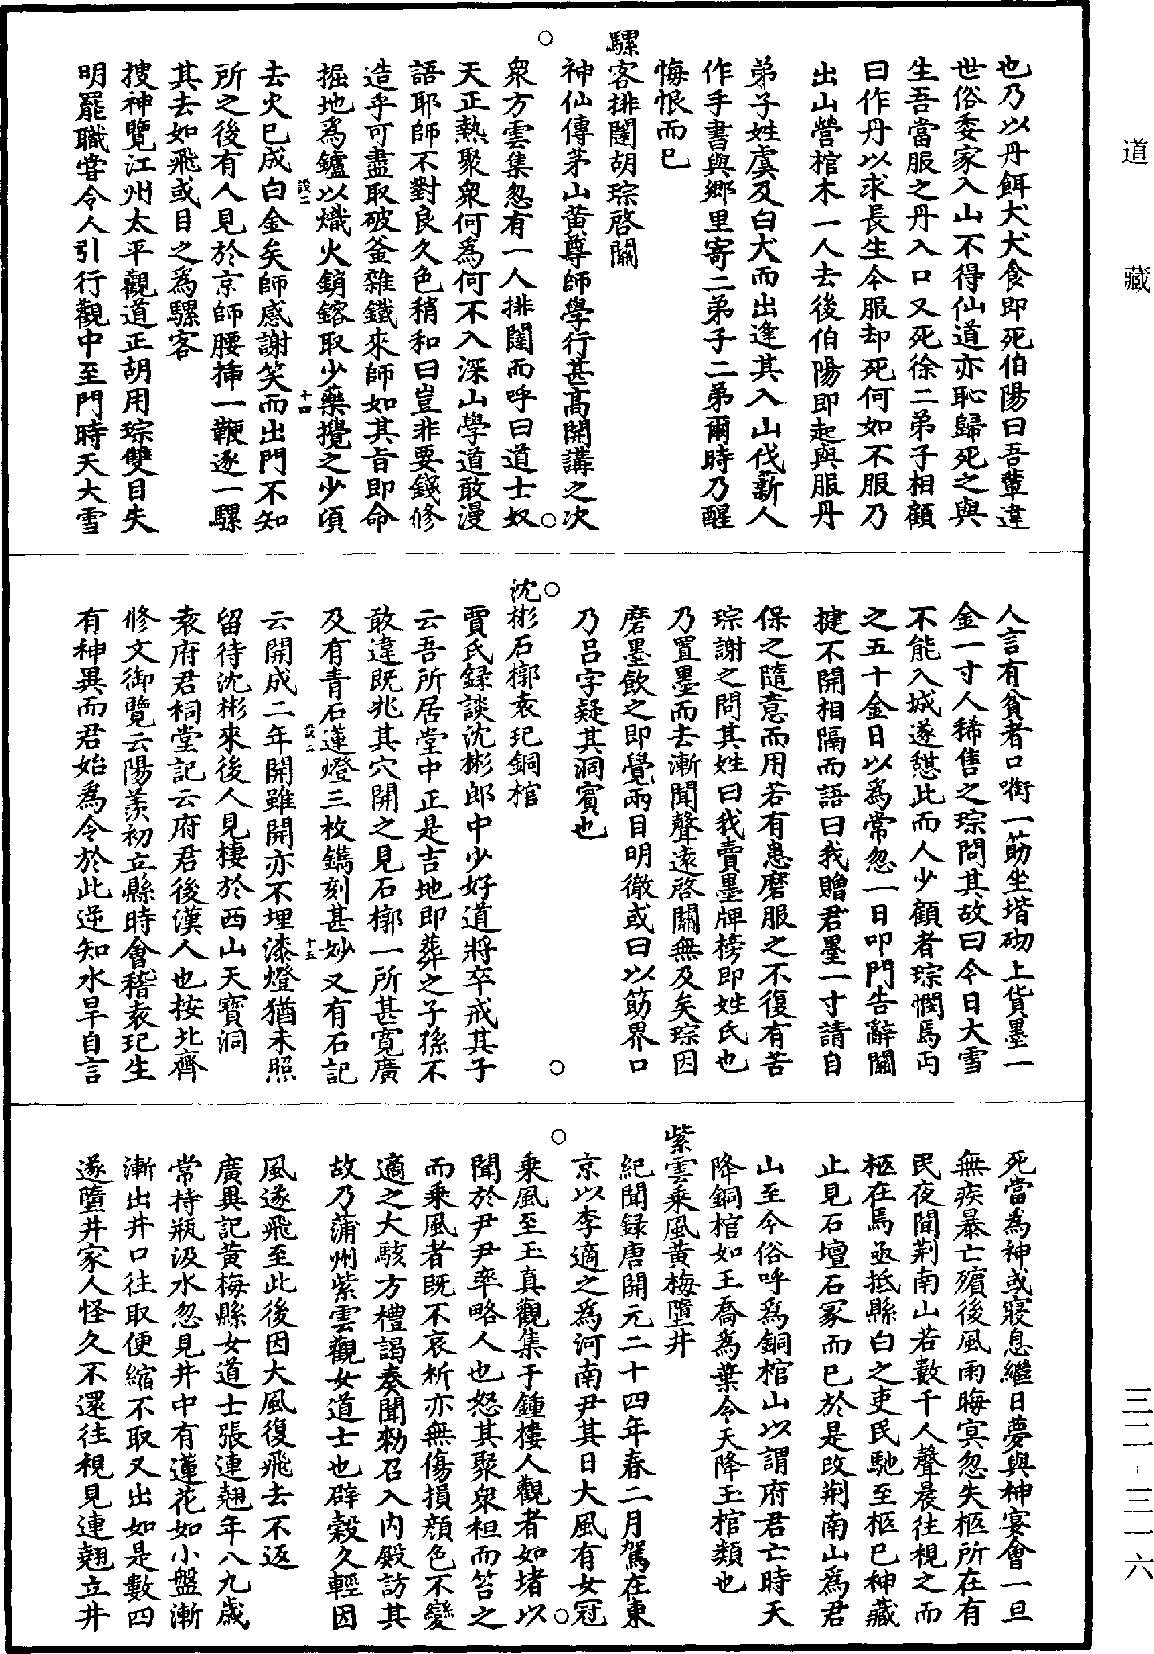 道藏
也乃以丹餌犬犬食即死伯陽曰吾輩違
世俗委家入山不得仙道亦恥歸死之與
生吾當服之丹入口又死徐二弟子相顧
曰作丹以求長生今服却死何如不服乃
出山營棺木一人去後伯陽即起與服丹
弟子姓虞及白犬而出逢其入山伐薪人
作手書與鄉里寄二弟子二弟爾時乃醒
悔恨而已
騾客排闥胡琮啓關
神仙傳茅山黄尊師學行甚高開講之次
衆方雲集忽有一人排闥而呼曰道士奴
天正熱聚衆何爲何不入深山學道敢漫
語耶師不對良久色稍和曰豈非要錢修
造乎可盡取破釜雜鐵來師如其旨即命
掘地爲鑪以熾火銷鎔取少藥攪之少頃
去火已成白金矣師感謝笑而出門不知
所之後有人見於京師腰揷一鞭逐一騾
其去如飛或目之爲騾客
搜神覽江州太平觀道正胡用琮雙目失
明罷職甞令人引行觀中至門時天大雪
人言有貧者口㘅一筯坐堦砌上貨墨一
金一寸人稀售之琮問其故曰今日大雪
不能入城遂憇此而人少顧者琮憫焉丐
之五十金日以爲常忽一日叩門告辭關
揵不開相隔而語曰我贈君墨一寸請自
保之隨意而用若有患磨服之不復有苦
琮謝之問其姓曰我賣墨牌榜即姓氏也
乃置墨而去漸聞聲遠啓關無及矣琮因
磨墨飲之即覺兩目明徹或曰以筯界口
乃吕字疑其洞賓也
沈彬石槨袁玘銅棺
賈氏録談沈彬郎中少好道將卒戒其子
云吾所居堂中正是吉地即葬之子孫不
敢違既兆其穴開之見石槨一所甚寬廣
及有青石蓮燈三枚鐫刻甚妙又有石記
云開成二年開雖開亦不埋漆燈猶未照
留待沈彬來後人見棲於西山天寶洞
袁府君祠堂記云府君後漢人也按北齊
修文御覽云陽羨初立縣時會稽袁玘生
有神異而君始爲令於此逆知水旱自言
死當爲神或寢息繼日夢與神宴會一旦
無疾暴亡殯後風雨晦冥忽失柩所在有
民夜聞荆南山若數千人聲晨往視之而
柩在焉亟抵縣白之吏民馳至柩已神藏
止見石壇石冢而已於是改荆南山爲君
山至今俗呼爲銅棺山以謂府君亡時天
降銅棺如王喬爲葉令天降玉棺類也
紫雲乘風黄梅墮井
紀聞録唐開元二十四年春二月駕在東
京以李適之爲河南尹其日大風有女冠
乘風至玉真觀集于鍾樓人觀者如堵以
聞於尹尹率略人也怒其聚衆袒而笞之
而乘風者既不哀祈亦無傷損顔色不變
適之大駭方禮謁奏聞勑召入内殿訪其
故乃蒲州紫雲觀女道士也辟穀久輕因
風遂飛至此後因大風復飛去不返
廣異記黄梅縣女道士張連翹年八九歲
常持瓶汲水忽見井中有蓮花如小盤漸
漸出井口往取便縮不取又出如是數四
遂墮井家人怪久不還往視見連翹立井
三二-三一六